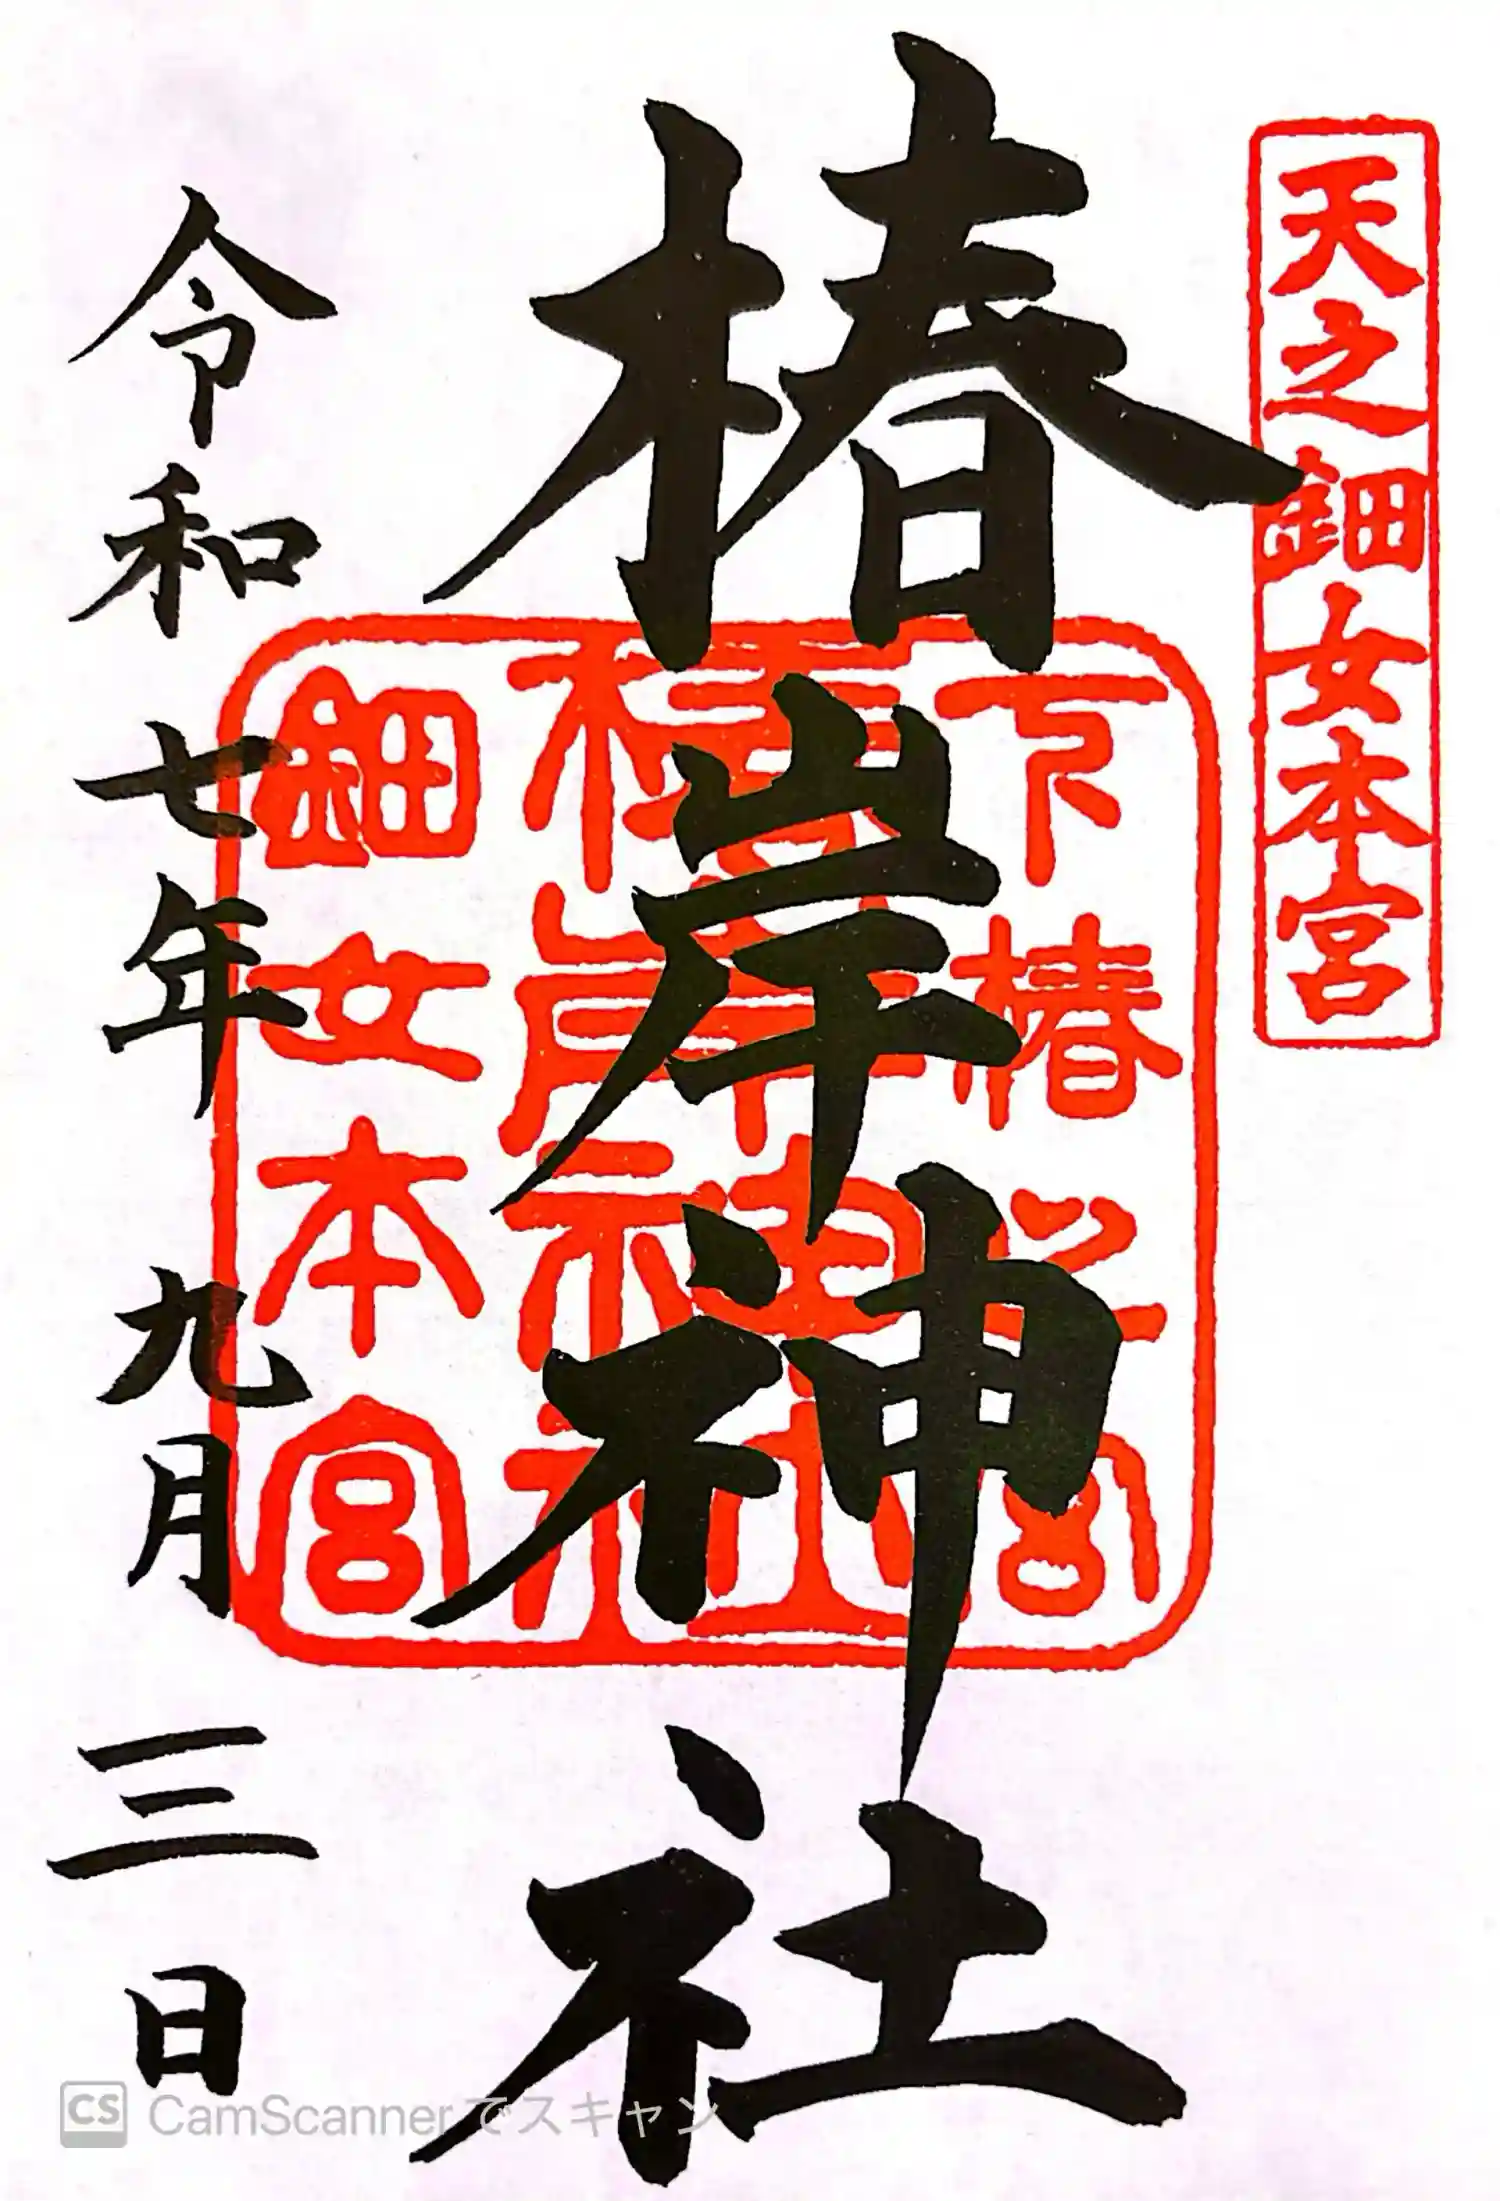 天之鈿女本宮
椿岸神社
下椿之宮
椿岸神社
鈿女本宮
令和七年九月三日
CS CamScannerでスキャン